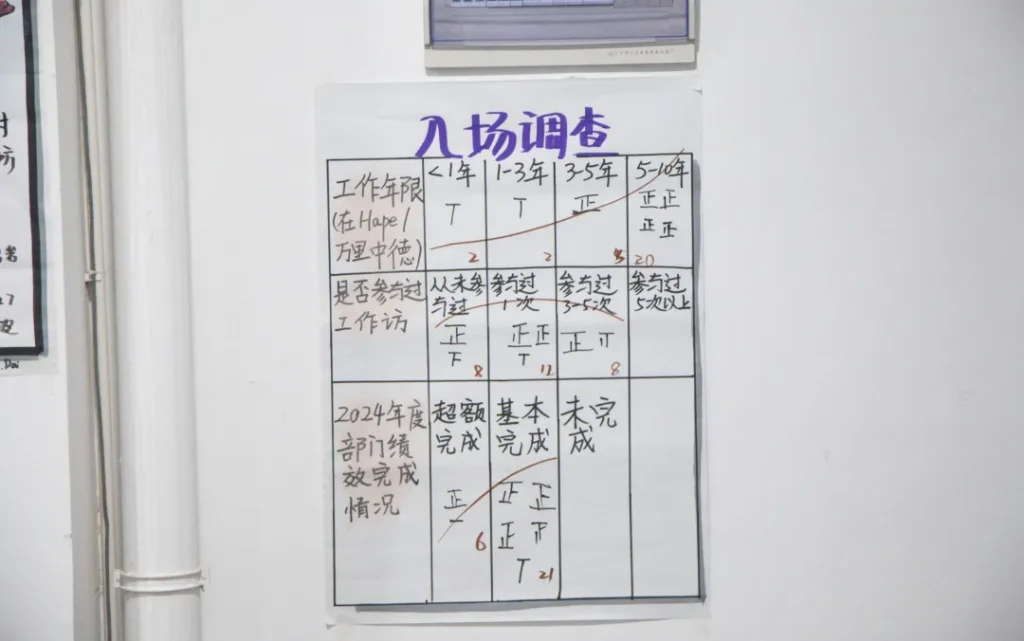 入场调查
工作年限
(在Hape/
万里中德)
<1年
T
2
1-3年
T
2
3-5年
正
5
5-10年
正正
正正
20
是否参与过
工作访
从未参
与过
正
下
8
参与过
1次
正正
T
12
参与过
3-5次
正
8
参与过
5次以上
2024年度
部门绩
效完成
情况
超额
完成
正
一
6
基本
完成
正正
正正
T
21
未完
成
Dai